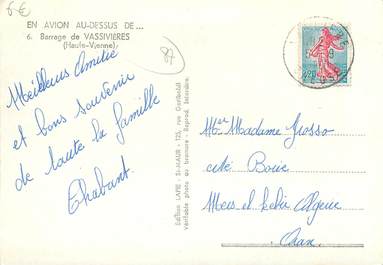 6€
EN AVION AU-DESSUS DE...
6. Barrage de VASSIVIÈRES
(Haute-Vienne)
87
Meilleurs Amitié
et bons souvenir
de toute la famille
Chabant.
Editions LAPIE - St-MAUR - 123, rue Garibaldi
véritable photo au bromure - Reprod. Interdite.
Mr Madame Grosso
cité
Mers el kebir Algerie
Oran